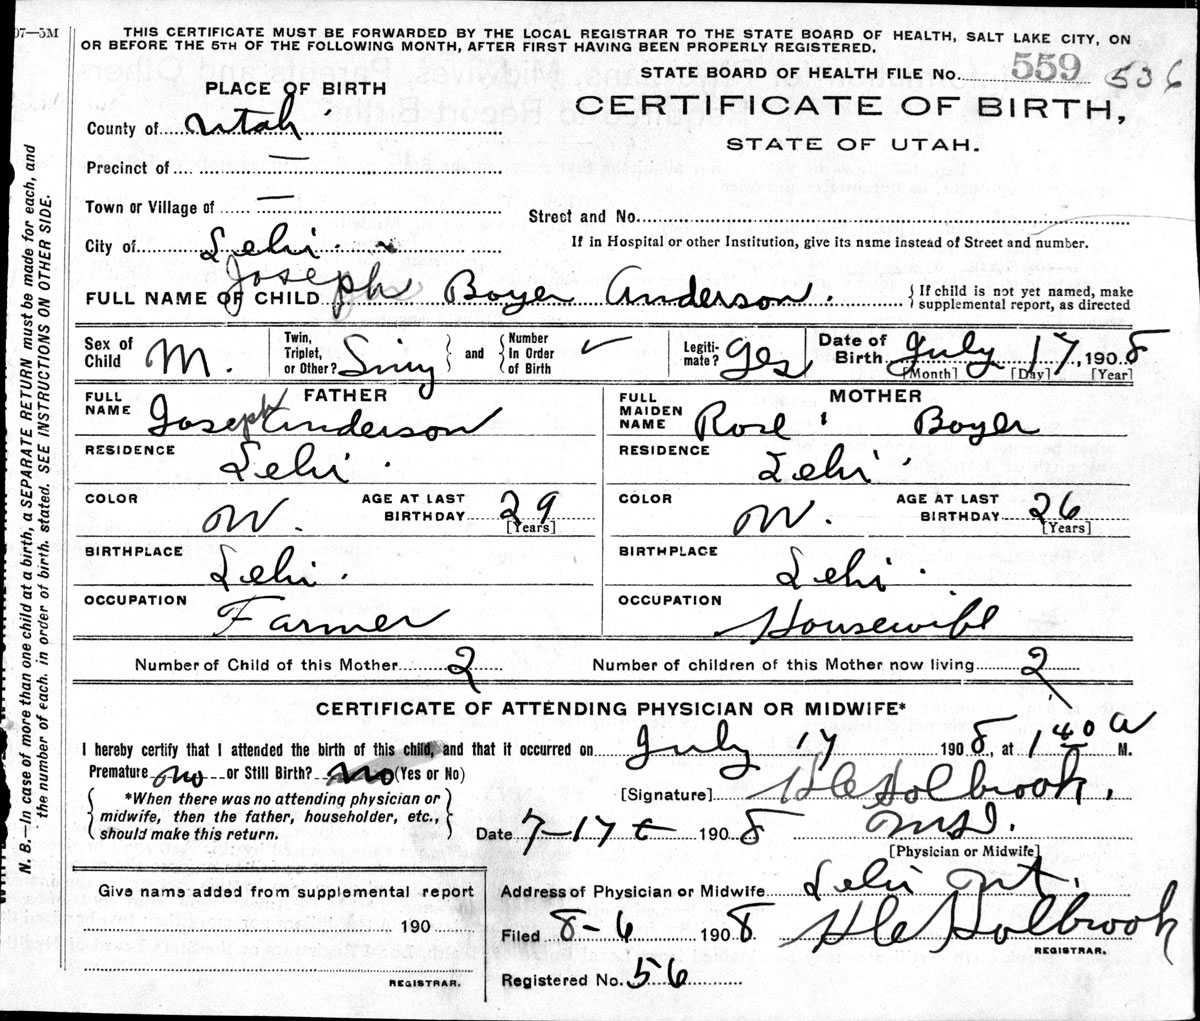 07—5M
THIS CERTIFICATE MUST BE FORWARDED BY THE LOCAL REGISTRAR TO THE STATE BOARD OF HEALTH, SALT LAKE CITY, ON
OR BEFORE THE 5TH OF THE FOLLOWING MONTH, AFTER FIRST HAVING BEEN PROPERLY REGISTERED.
STATE BOARD OF HEALTH FILE No. 559 536
PLACE OF BIRTH
CERTIFICATE OF BIRTH,
STATE OF UTAH.
County of Utah
Precinct of —
Town or Village of —
Street and No.
City of Lehi.
If in Hospital or other Institution, give its name instead of Street and number.
FULL NAME OF CHILD Joseph Boyer Anderson. { If child is not yet named, make
supplemental report, as directed
Sex of Child M. Twin, Triplet, or Other? Sing } and { Number In Order of Birth ✓ Legiti-mate? Yes Date of Birth July 17, 1908
[Month] [Day] [Year]
FATHER
FULL NAME Joseph Anderson
RESIDENCE Lehi.
COLOR W. AGE AT LAST BIRTHDAY 29
[Years]
BIRTHPLACE Lehi.
OCCUPATION Farmer
MOTHER
FULL MAIDEN NAME Rose Boyer
RESIDENCE Lehi.
COLOR W. AGE AT LAST BIRTHDAY 26
[Years]
BIRTHPLACE Lehi.
OCCUPATION Housewife
Number of Child of this Mother 2 Number of children of this Mother now living 2
CERTIFICATE OF ATTENDING PHYSICIAN OR MIDWIFE*
I hereby certify that I attended the birth of this child, and that it occurred on July 17 1908, at 1 40 A M.
Premature no or Still Birth? no (Yes or No)
{ *When there was no attending physician or
midwife, then the father, householder, etc.,
should make this return. }
[Signature] Holbrook.
Date 7-17 1908 M.D.
[Physician or Midwife]
Give name added from supplemental report
190
REGISTRAR.
Address of Physician or Midwife Lehi Ut.
Filed 8-6 1908 Holbrook
REGISTRAR.
Registered No. 56
N. B.—In case of more than one child at a birth, a SEPARATE RETURN must be made for each, and
the number of each, in order of birth, stated. SEE INSTRUCTIONS ON OTHER SIDE.